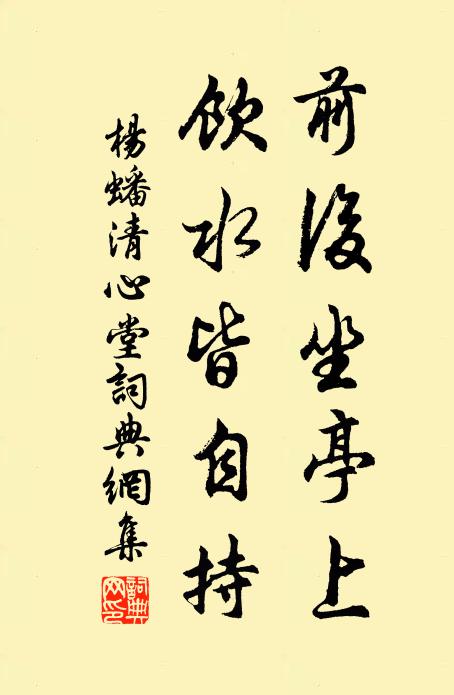 前後坐亭上
飲水皆自持
楊蟠清心堂詞典網集
詞典網印